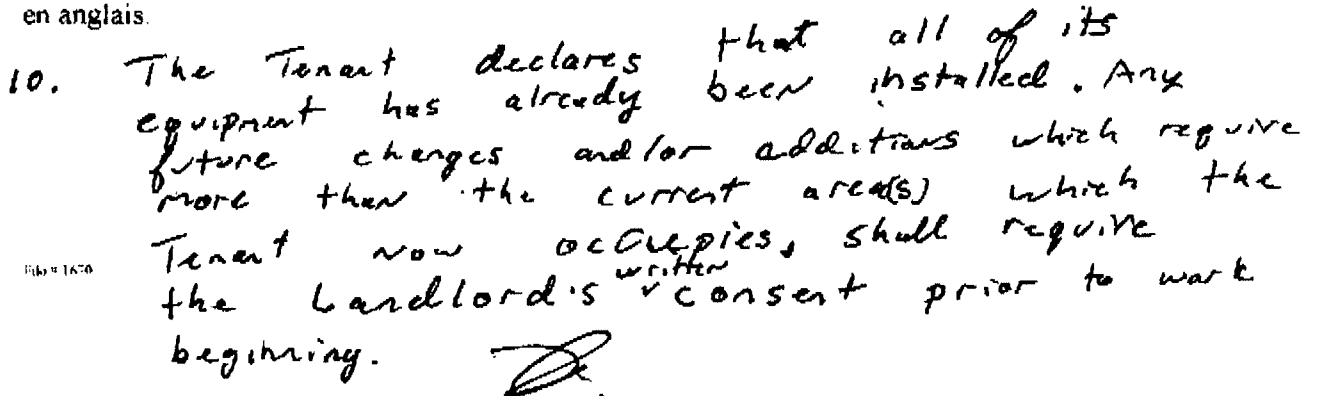 en anglais.
10. The Tenant declares that all of its
equipment has already been installed. Any
future changes and/or additions which require
more than the current area(s) which the
Tenant now occupies, shall require
File # 1670
the Landlord's written consent prior to work
beginning.